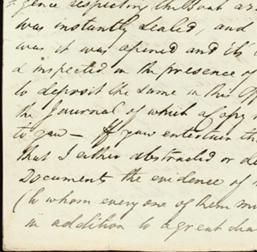 gence respecting the Boat a
was instantly sealed, and
was it was opened and its
d inspected in the presence of
to deposit the same in this Off
the Journal of which a copy
to you — If you entertain th
that I either abstracted or de
Documents the evidence of
(to whom every one of them
in addition to a great cha